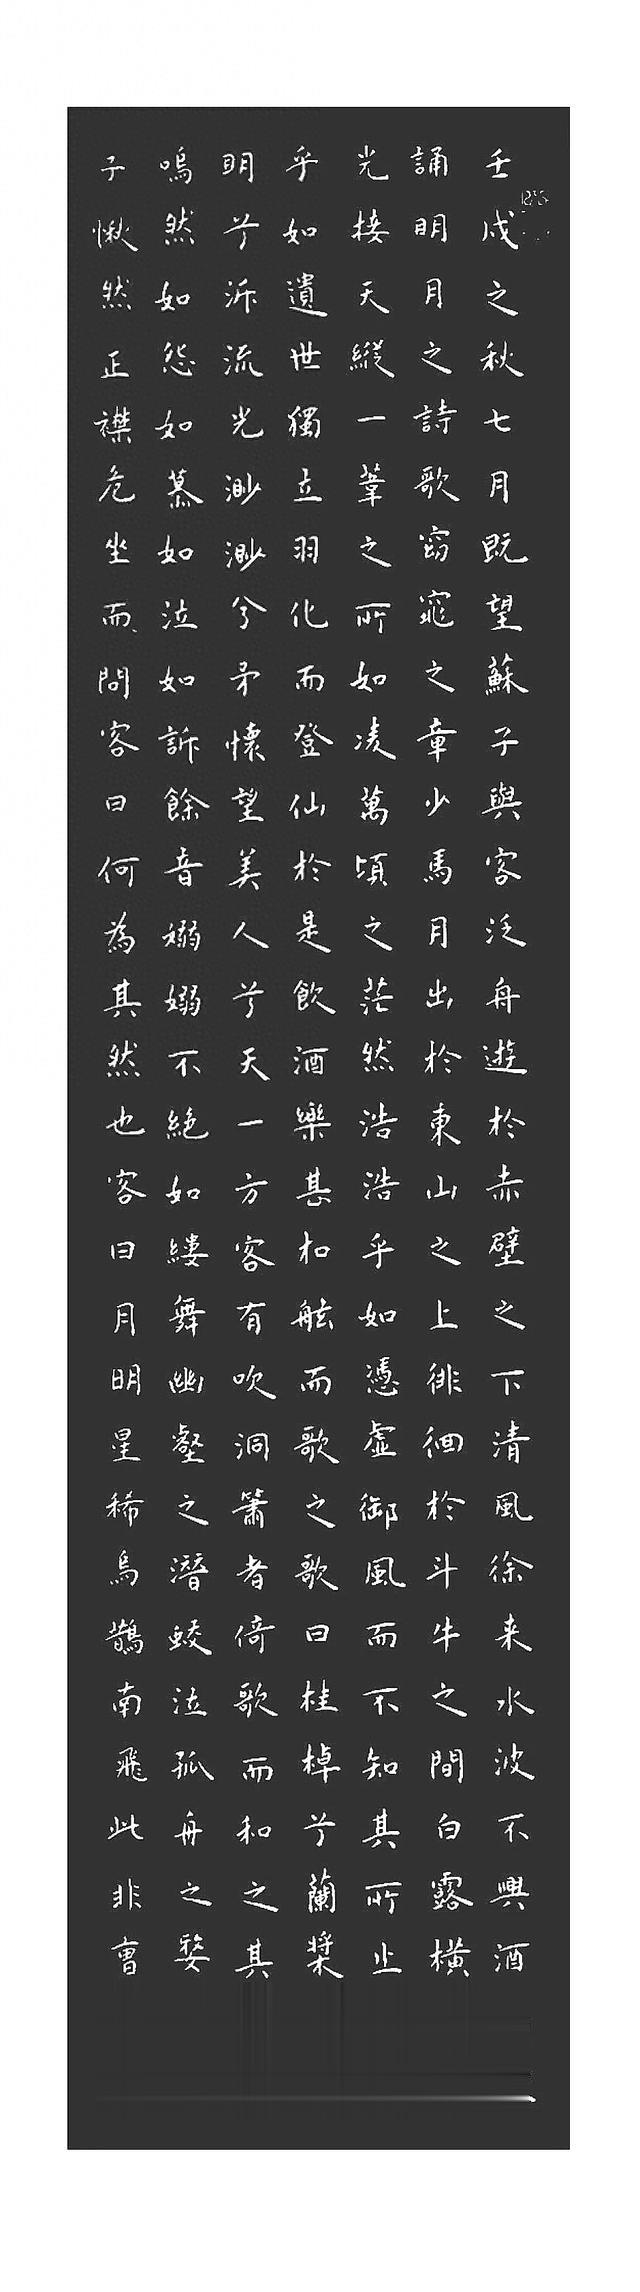 壬戌之秋七月既望蘇子與客泛舟遊於赤壁之下清風徐来水波不興酒
誦明月之詩歌窈窕之章少馬月出於東山之上徘徊於斗牛之間白露橫
光接天縱一葦之所如凌萬頃之茫然浩浩乎如憑虛御風而不知其所止
乎如遺世獨立羽化而登仙於是飲酒樂甚扣舷而歌之歌曰桂棹兮蘭槳
明兮泝流光渺渺兮予懷望美人兮天一方客有吹洞簫者倚歌而和之其
嗚然如怨如慕如泣如訴餘音嫋嫋不絕如縷舞幽壑之潛蛟泣孤舟之嫠
子愀然正襟危坐而問客曰何為其然也客曰月明星稀烏鵲南飛此非曹